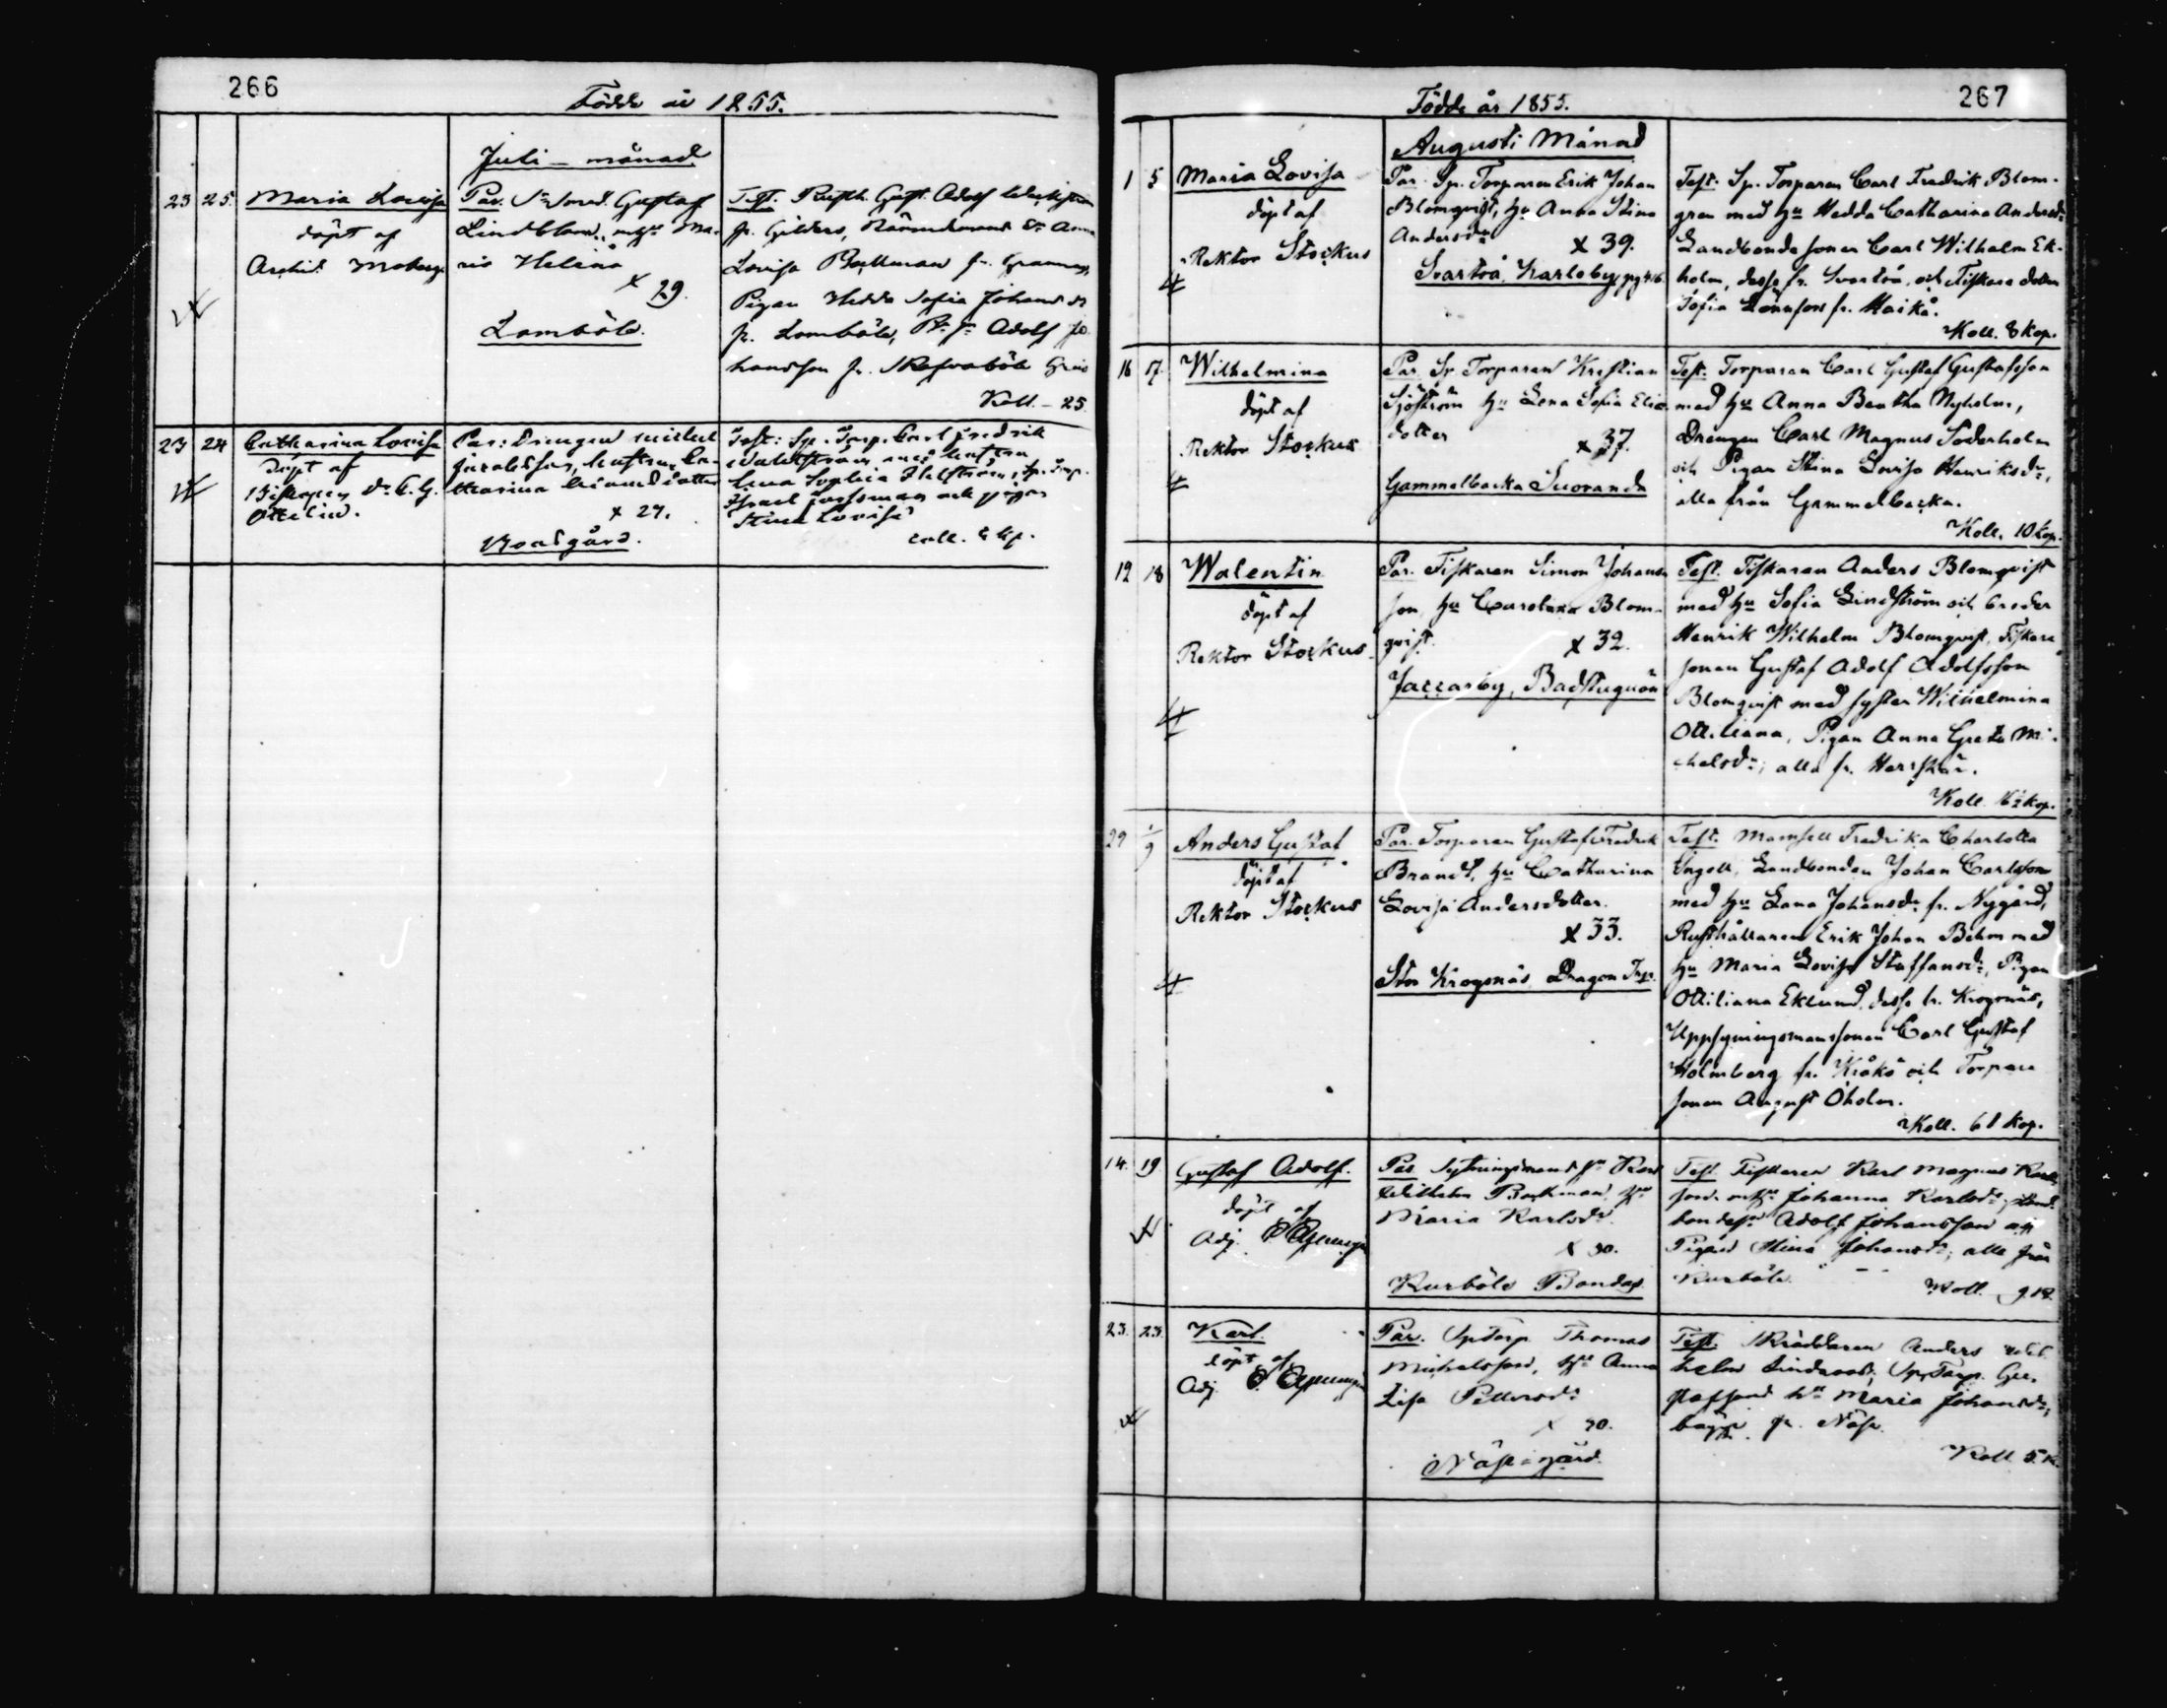 266
Födde år 1855.
Juli - månad
23 25. Maria Lovisa
döpt af
Archid. Moberg
Par. Gustaf
Lindblom, m. hu Ma-
ria Helena
x 29.
Lomböle.
Test. Rusth. Gust. Adolf
fr. Gilders, Nämndemans dr Anna
Lovisa fr.
Pigan Hedda Sofia Johansdr
fr. Lomböle, Adolf Jo-
hansson fr.
Koll. - 25.
23 24 Catharina Lovisa
döpt af
Biskopen Dr. C. G.
Ottelin.
Par: Drengen Michel
hustrun Ca-
tharina
x 27.
Test: Sp. Torp. Carl Fredrik
med hustru
Lena Sophia Sp. Torp.
Israel och pigan
Stina Lovisa
coll. kp.
267
Födde år 1855.
Augusti Månad
1 5 Maria Lovisa
döpt af
Rektor Stockus
Par. Sp. Torparen Erik Johan
Blomqvist, hu Anna Stina
Andersdr
x 39.
Svartvå, Karleby
Test. Sp. Torparen Carl Fredrik Blom-
gren med hu Hedda Catharina Andersdr
Landbondesonen Carl Wilhelm Ek-
holm, desse fr. Svartvå, och Fiskare dottern
Sofia Lönnfors fr. Haikå.
Koll. 8 kop.
16 17. Wilhelmina
döpt af
Rektor Stockus
Par. Sp. Torparen Kristian
Sjöström hu Lena Sofia Elias-
dotter
x 37.
Gammelbacka Suoranda
Test. Torparen Carl Gustaf Gustafsson
med hu Anna Beatha Nyholm,
Drengen Carl Magnus Söderholm
och Pigan Stina Lovisa Henriksdr,
alla från Gammelbacka.
Koll. 10 kop.
12 18 Walentin
döpt af
Rektor Stockus.
Par. Fiskaren Simon Johans-
son, hu Carolina Blom-
qvist.
x 32.
Jackarby, Badstuguön
Test. Fiskaren Anders Blomqvist
med hu Sofia Lindström och broder
Henrik Wilhelm Blomqvist, Fiskare
sonen Gustaf Adolf Adolfsson
Blomqvist med syster Wilhelmina
Ottiliana, Pigan Anna Greta Mi-
chelsdr; alla fr. Herrskär.
Koll. 16½ kop.
29 1/9 Anders Gustaf
döpt af
Rektor Stockus
Par. Torparen Gustaf Fredrik
Brandt, hu Catharina
Lovisa Andersdotter.
x 33.
Stor Krogsnäs, Dragon Torp.
Test. Mamsell Fredrika Charlotta
Ingell, Landbonden Johan Carlsson
med hu Lena Johansdr fr. Nygård,
Rusthållaren Erik Johan Behm med
hu Maria Lovisa Staffansdr, Pigan
Ottiliana Eklund, desse fr. Krogsnäs,
Uppsyningsmanssonen Carl Gustaf
Holmberg fr. Kråkö och Torpare
sonen August Öholm.
Koll. 61 kop.
14. 19 Gustaf Adolf.
döpt af
Adj.
Par. Karl
Wilhelm Backman, hu
Maria Karlsdr.
x 30.
Kurböle Bondas
Test. Fiskaren Karl Magnus Karls-
son m. hu Johanna Karlsdr,
Adolf Johansson och
Pigan Stina Johansdr; alla från
Kurböle.
Koll. 9 k.
23. 23. Karl.
döpt af
Adj.
Par. Sp Torp Thomas
Michelsson, hu Anna
Lisa Pettersdr
x 30.
Näse gård.
Test. Skräddaren Anders Wil-
helm Lindroos, Sp. Torp. Gu-
stafsson hu Maria Johansdr,
fr. Näse.
Koll. 5. k.